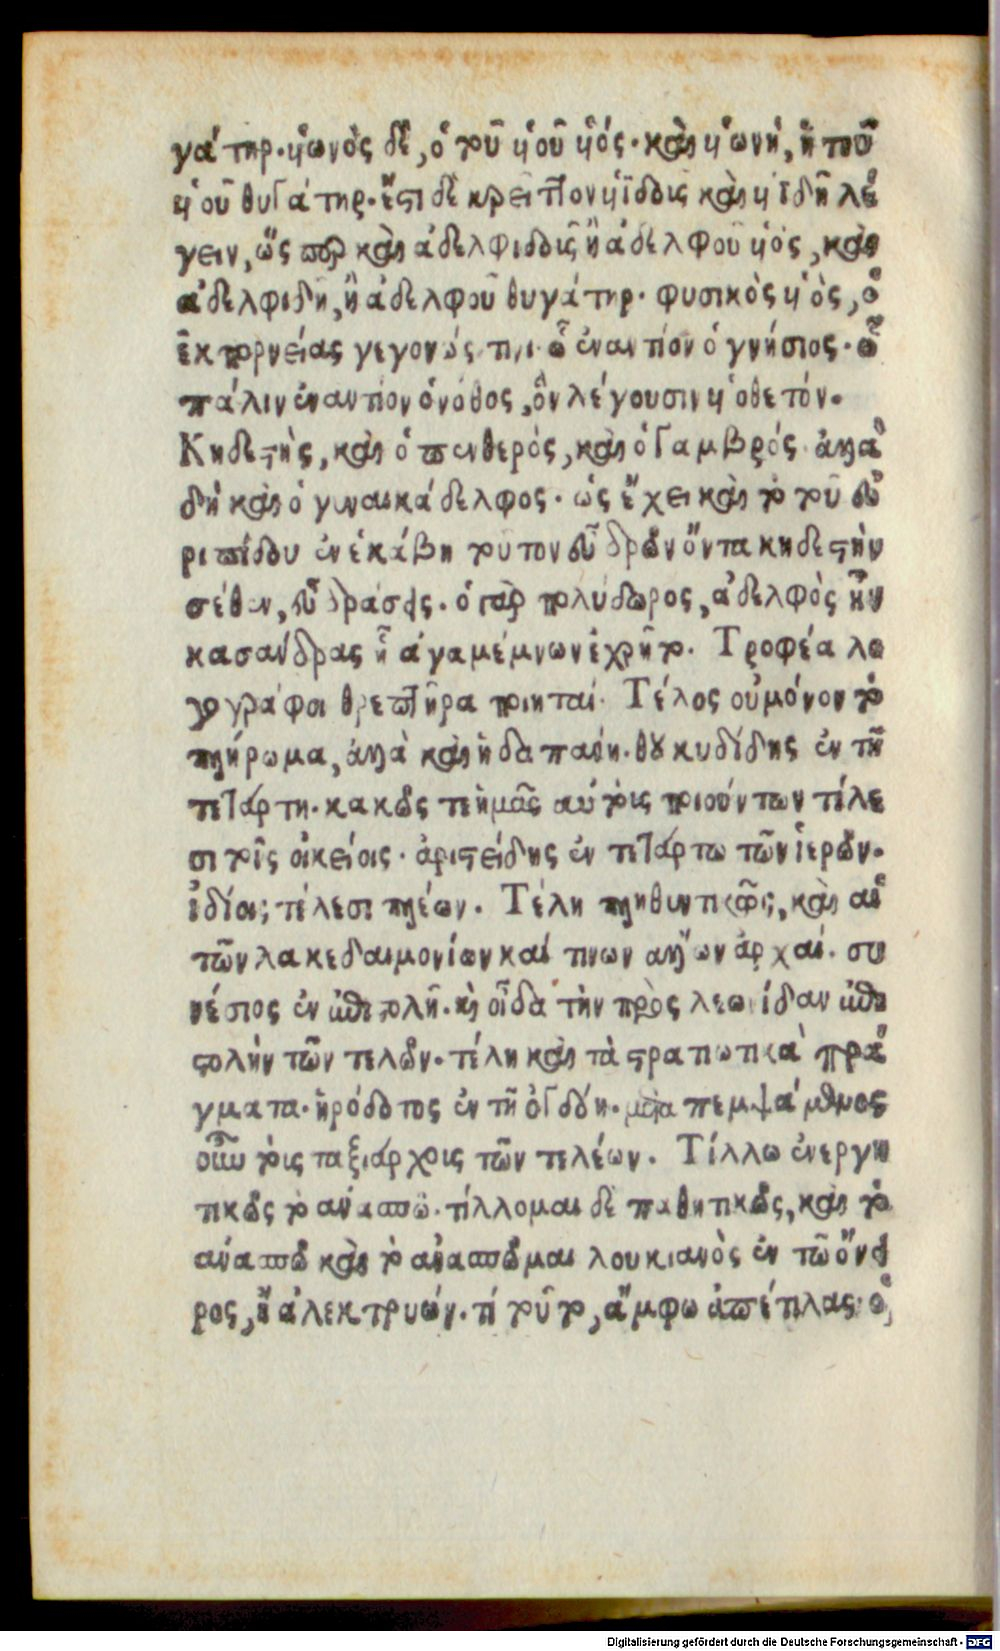 γάτηρ. υἱωνὸς δὲ, ὁ τοῦ υἱοῦ υἱός. καὶ υἱωνή, ἡ τοῦ
υἱοῦ θυγάτηρ. ἔστι δὲ κρεῖττον υἱϊδοῦς καὶ υἱϊδῆ λέ
γειν, ὥσπερ καὶ ἀδελφιδοῦς ἢ ἀδελφοῦ υἱὸς, καὶ
ἀδελφιδῆ, ἢ ἀδελφοῦ θυγάτηρ. φυσικὸς υἱὸς, ὁ
ἐκ πορνείας γεγονώς τινι. ᾧ ἐναντίον ὁ γνήσιος. ᾧ
πάλιν ἐναντίον ὁ νόθος, ὃν λέγουσιν υἱοθετόν.
Κηδεστὴς, καὶ ὁ πενθερὸς, καὶ ὁ γαμβρός. ἀλλὰ
δὴ καὶ ὁ γυναικάδελφος. ὡς ἔχει καὶ τὸ τοῦ εὐ
ριπίδου ἐν ἑκάβῃ τοῦτον εὖ δρῶν ὄντα κηδεστὴν
σέθεν, εὖ δράσεις. ὁ γὰρ πολύδωρος, ἀδελφὸς ἦν
κασάνδρας ᾗ ἀγαμέμνων ἐχρῆτο. Τροφέα λο
γογράφοι θρεπτῆρα ποιηταί. Τέλος οὐ μόνον τὸ
πλήρωμα, ἀλλὰ καὶ ἡ δαπάνη. θουκυδίδης ἐν τῇ
τετάρτῃ. κακῶς τε ἡμᾶς αὐτοὺς ποιούντων τέλε
σι τοῖς οἰκείοις. ἀριστείδης ἐν τετάρτω τῶν ἱερῶν.
ἰδίοις τέλεσι πλέων. Τέλη πληθυντικῶς, καὶ αἱ
τῶν λακεδαιμονίων καί τινων ἄλλων ἀρχαί. συ
νέσιος ἐν ἐπιστολῇ. καὶ οἶδα τὴν πρὸς λεωνίδαν ἐπι
στολὴν τῶν τελῶν. τέλη καὶ τὰ στρατιωτικὰ πρά
γματα. ἡρόδοτος ἐν τῇ ὀγδόη. μεταπεμψάμενος
οὖν τοὺς ταξιάρχους τῶν τελέων. Τίλλω ἐνεργη
τικῶς τὸ ἀνασπῶ. τίλλομαι δὲ παθητικῶς, καὶ τὸ
ἀνασπῶ καὶ τὸ ἀνασπῶμαι λουκιανὸς ἐν τῶ ὄνει
ρος, ἢ ἀλεκτρυών. τί τοῦτο, ἄμφω ἀπέτιλας. ὁ
Digitalisierung gefördert durch die Deutsche Forschungsgemeinschaft - DFG